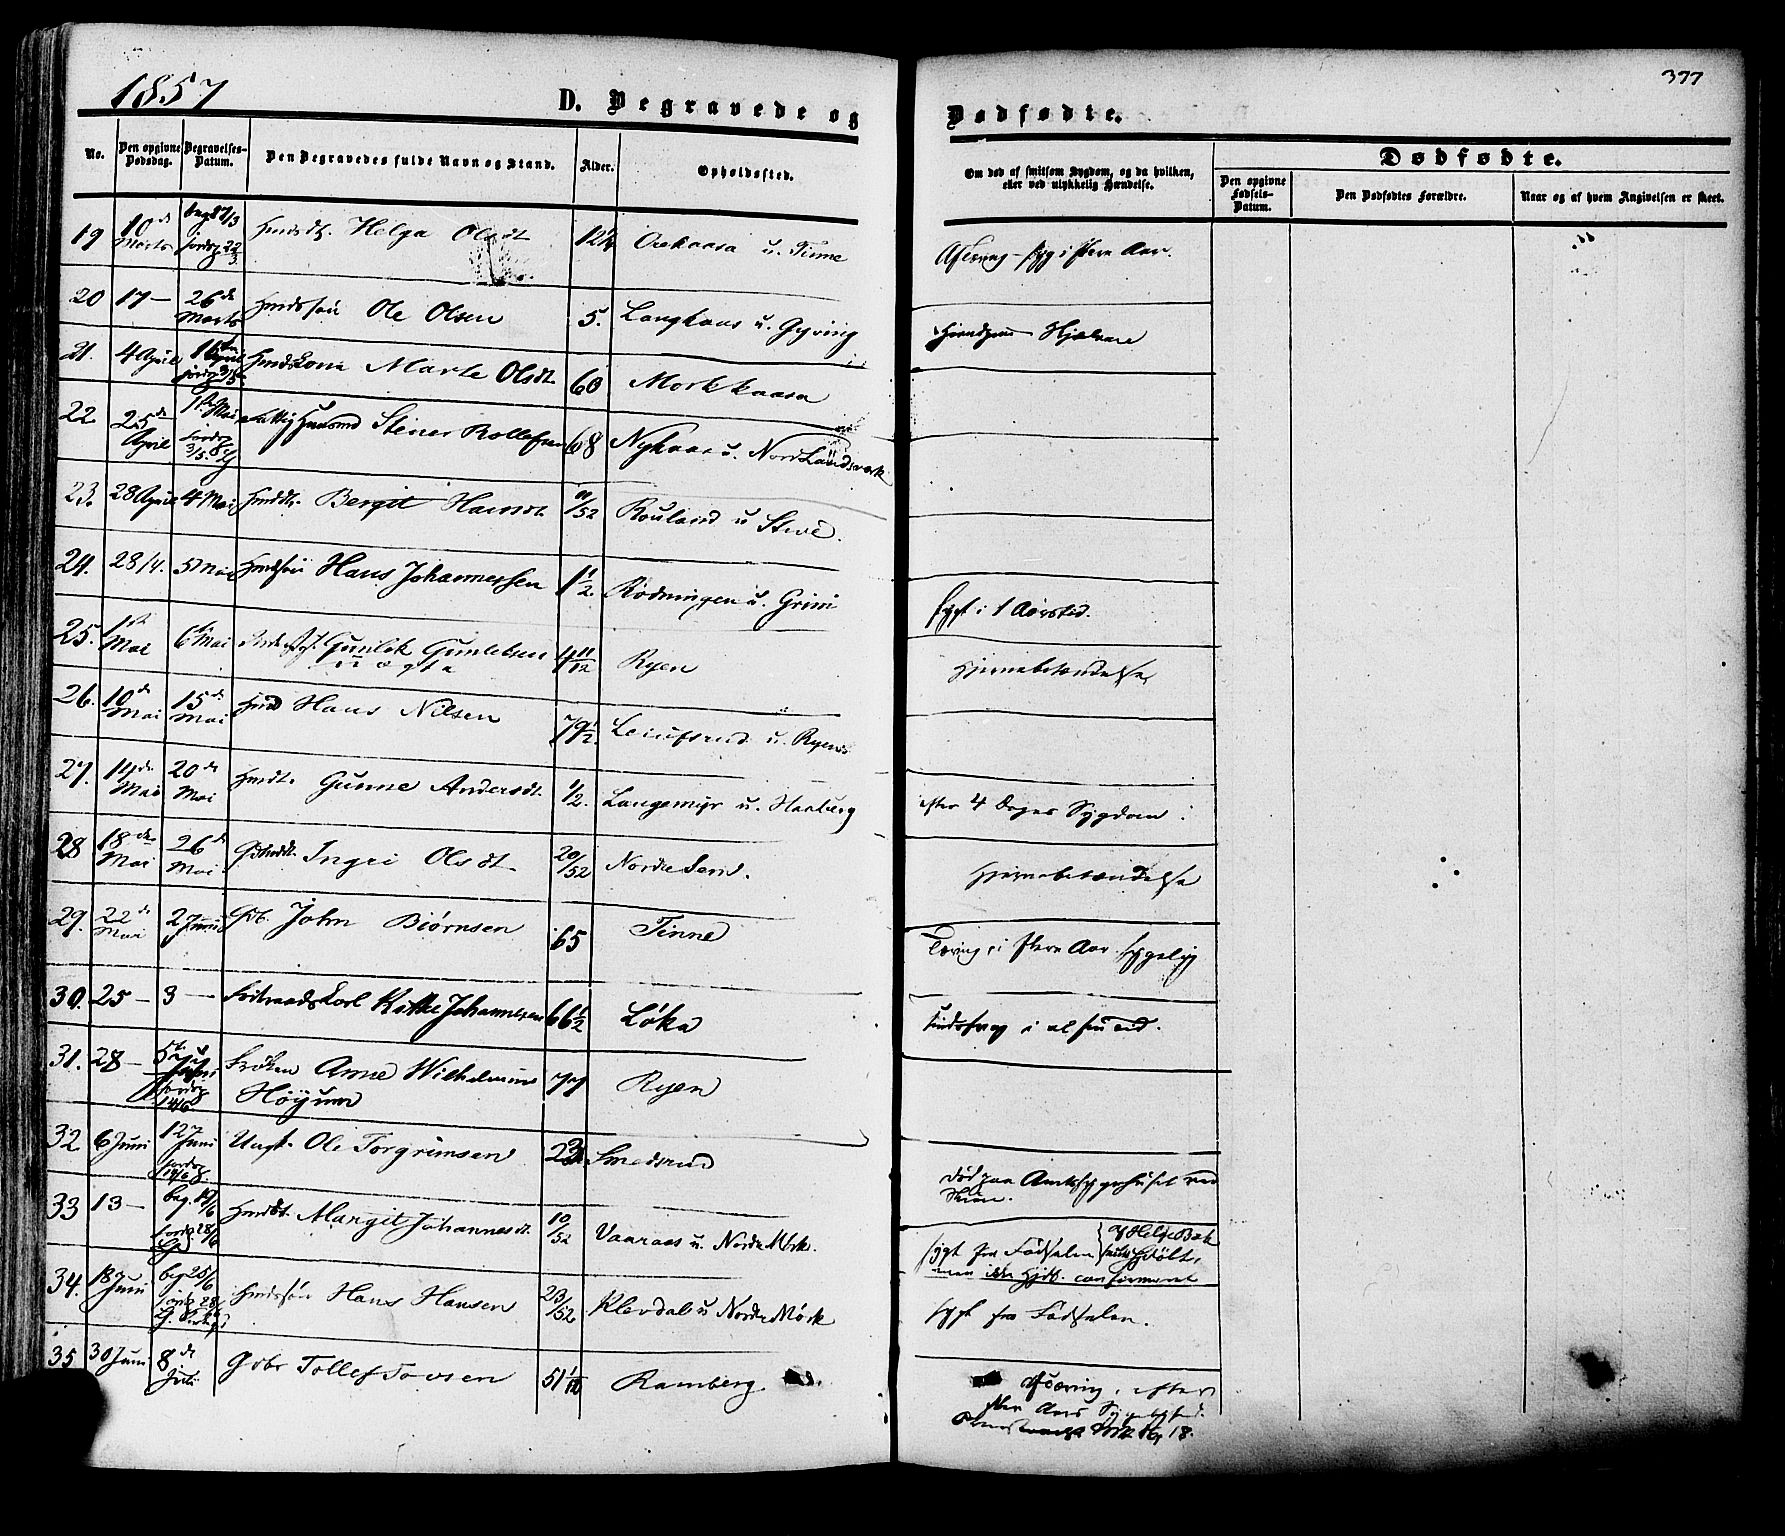 377
1857
D. Begravede og Dødfødte.
No. Den opgivne Dødsdag. Begravelses-Datum. Den Begravedes fulde Navn og Stand. Alder. Opholdssted. Om død af smitsom Sygdom, og da hvilken, eller ved ulykkelig Hændelse.
Dødfødte.
Den opgivne Fødsels-Datum. Den Dødfødtes Forældre. Naar og af hvem Angivelsen er skeet.
19 10de Marts beg 17/3 jordp. 22/3 Hmdsdt. Helga Olsdt 12 1/4 Orekaasa u. Tinne syg i flere Aar.
20 17 — 26de Marts Hmdssøn Ole Olsen 5. Langkaas u. Gyving
21. 4 April 16de April jordp. 3/5 Hmdskone Marte Olsdt. 60 Morkkaasa
22. 25de April 1ste Mai jordp 3/5. Husmd Stener Rollefsen 68 Nykaas u. Nord Landsverk
23. 28 April 4 Mai Hmddt. Bergit Hansdt. 11/52 Rouland u Stivi.
24. 28/4. 5 Mai Hmdssøn Hans Johannessen 1 1/2 Rødningen u. Grini sygt i 1 Aarstid.
25. 1ste Mai 6te Mai Gunlek Gunleksen 4 11/12 Ryen Hjernebetændelse
26. 10de Mai 15de Mai Hmd Hans Nilsen 79 1/2. Leiufsrud u. Ryen
27. 14de Mai 20de Mai Hmdt. Gunne Andersdt. 1/2. Langemyr u. Haaberg efter 4 Dages Sygdom
28 18de Mai 26de Mai Gbmdt. Ingri Olsdt. 20/52 Nordre Sem. Hjernebetændelse
29. 22de Mai 2 Juni Gdb. John Biørnsen 65 Tinne Tæring, i flere Aar sygelig
30. 25 — 3 — Føderaadskarl Kittil Johannesen 66 1/2 Løka
31. 28 — 5te Juni jordp 14/6 Frøken Anne Wilhelmine Höyum 77 Ryen
32. 6 Juni 12te Juni jordp 14/6 Ungk. Ole Torgrimsen 23 Smedsrud død paa Amtssygehuset ved Skien.
33 13 — beg. 19/6 jordp 28/6 Hmddt. Margit Johannesdt. 10/52 Vaaraas u. Nordre Mørk. sygt fra Fødselen af Helje Bak døbt, men ikke Hjdb. confirmeret
34. 18 Juni beg 25/6 jordp 28/6 Hmdssøn Hans Hansen 23/52 Klevdal u Nordre Mørk sygt fra Fødselen.
35 30 Juni 8de Juli Gdbr Tollef Tovsen 51 1/12 Ramberg. Tæring, efter flere Aars Sygelighed. 18.